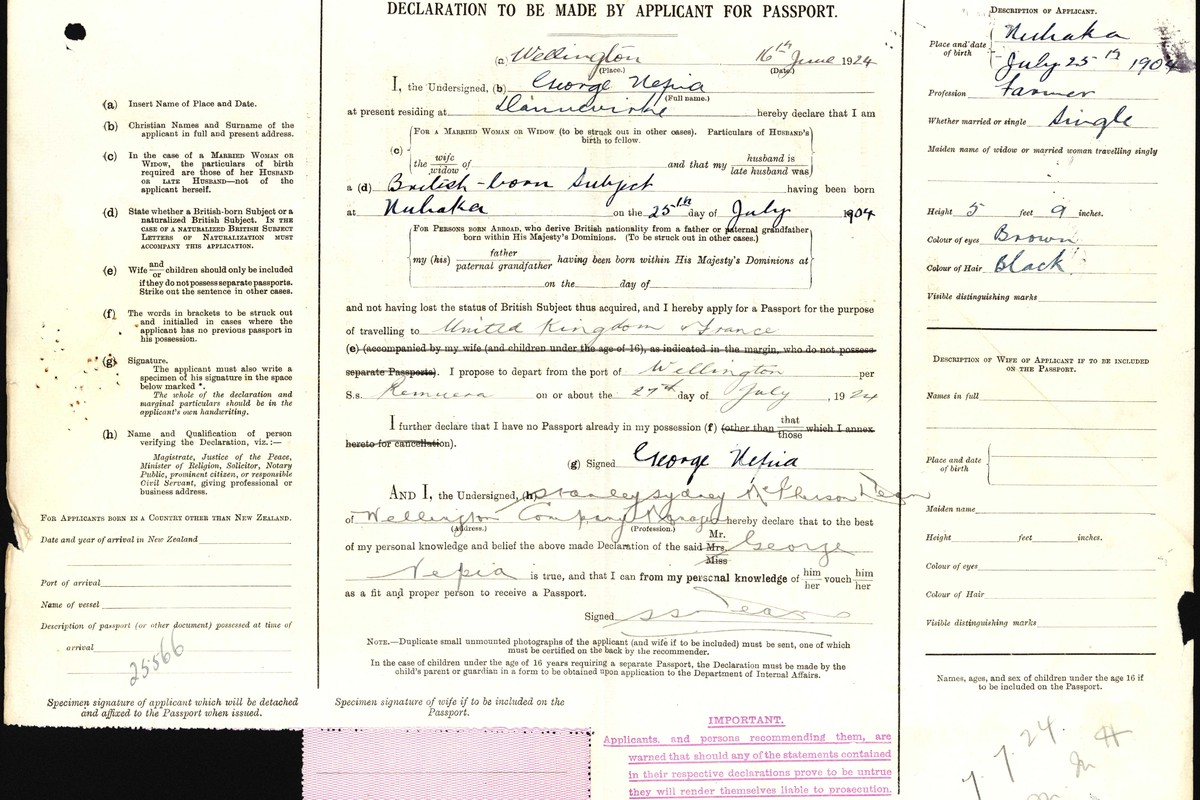 DECLARATION TO BE MADE BY APPLICANT FOR PASSPORT.
(a) Wellington 16th June 1924
(Place.) (Date.)
I, the Undersigned, (b) George Nepia
(Full name.)
at present residing at Dannevirke hereby declare that I am
(c) FOR A MARRIED WOMAN OR WIDOW (to be struck out in other cases). Particulars of HUSBAND'S
birth to follow.
the wife/widow of and that my husband is/late husband was
a (d) British-born Subject having been born
at Nuhaka on the 25th day of July 1904
FOR PERSONS BORN ABROAD, who derive British nationality from a father or paternal grandfather
born within His Majesty's Dominions. (To be struck out in other cases.)
my (his) father/paternal grandfather having been born within His Majesty's Dominions at
on the day of
and not having lost the status of British Subject thus acquired, and I hereby apply for a Passport for the purpose
of travelling to United Kingdom & France
(e) (accompanied by my wife (and children under the age of 16), as indicated in the margin, who do not possess
separate Passports). I propose to depart from the port of Wellington per
S.s. Remuera on or about the 27th day of July, 1924
I further declare that I have no Passport already in my possession (f) (other than that/those which I annex
hereto for cancellation).
(g) Signed George Nepia
AND I, the Undersigned, (h) Stanley Sydney McPherson Dean
of Wellington Company Manager hereby declare that to the best
(Address.) (Profession.)
of my personal knowledge and belief the above made Declaration of the said Mr./Mrs./Miss George
Nepia is true, and that I can from my personal knowledge of him/her vouch him/her
as a fit and proper person to receive a Passport.
Signed SS Dean
NOTE.—Duplicate small unmounted photographs of the applicant (and wife if to be included) must be sent, one of which
must be certified on the back by the recommender.
In the case of children under the age of 16 years requiring a separate Passport, the Declaration must be made by the
child's parent or guardian in a form to be obtained upon application to the Department of Internal Affairs.
(a) Insert Name of Place and Date.
(b) Christian Names and Surname of the
applicant in full and present address.
(c) In the case of a MARRIED WOMAN OR
WIDOW, the particulars of birth
required are those of her HUSBAND
OR LATE HUSBAND—not of the
applicant herself.
(d) State whether a British-born Subject or a
naturalized British Subject. IN THE
CASE OF A NATURALIZED BRITISH SUBJECT
LETTERS OF NATURALIZATION MUST
ACCOMPANY THIS APPLICATION.
(e) Wife and/or children should only be included
if they do not possess separate passports.
Strike out the sentence in other cases.
(f) The words in brackets to be struck out
and initialled in cases where the
applicant has no previous passport in
his possession.
(g) Signature.
The applicant must also write a
specimen of his signature in the space
below marked *.
The whole of the declaration and
marginal particulars should be in the
applicant's own handwriting.
(h) Name and Qualification of person
verifying the Declaration, viz.:—
Magistrate, Justice of the Peace,
Minister of Religion, Solicitor, Notary
Public, prominent citizen, or responsible
Civil Servant, giving professional or
business address.
FOR APPLICANTS BORN IN A COUNTRY OTHER THAN NEW ZEALAND.
Date and year of arrival in New Zealand
Port of arrival
Name of vessel
Description of passport (or other document) possessed at time of
arrival
25566
Specimen signature of applicant which will be detached
and affixed to the Passport when issued.
Specimen signature of wife if to be included on the
Passport.
IMPORTANT.
Applicants, and persons recommending them, are
warned that should any of the statements contained
in their respective declarations prove to be untrue
they will render themselves liable to prosecution.
DESCRIPTION OF APPLICANT.
Place and date of birth Nuhaka
July 25th 1904
Profession Farmer
Whether married or single Single
Maiden name of widow or married woman travelling singly
Height 5 feet 9 inches.
Colour of eyes Brown
Colour of Hair Black
Visible distinguishing marks
DESCRIPTION OF WIFE OF APPLICANT IF TO BE INCLUDED
ON THE PASSPORT.
Names in full
Place and date
of birth
Maiden name
Height feet inches.
Colour of eyes
Colour of Hair
Visible distinguishing marks
Names, ages, and sex of children under the age 16 if
to be included on the Passport.
7.24.